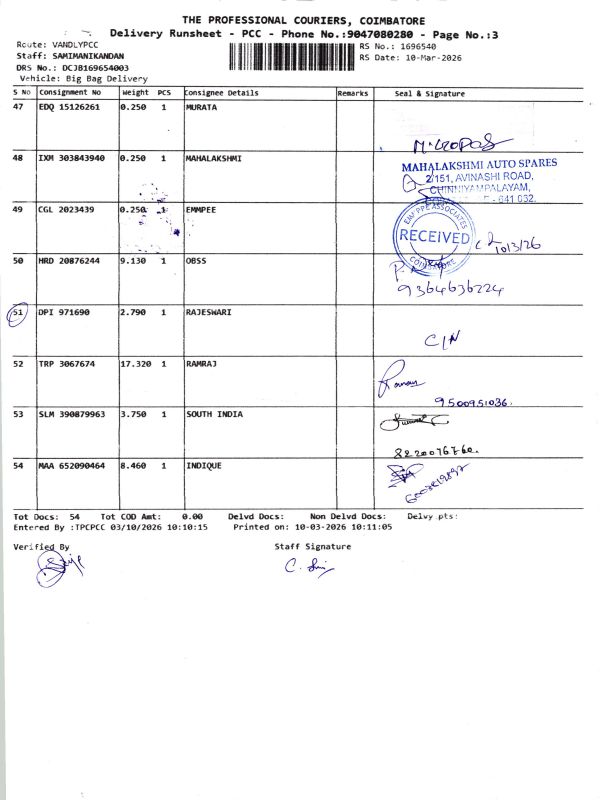 THE PROFESSIONAL COURIERS, COIMBATORE
Delivery Runsheet - PCC - Phone No.:9047080280 - Page No.:3
Route: VANDLYPCC
RS No.: 1696540
Staff: SAMIMANIKANDAN
RS Date: 10-Mar-2026
DRS No.: DCJB169654003
Vehicle: Big Bag Delivery
S No Consignment No Weight PCS Consignee Details Remarks Seal & Signature
47 EDQ 15126261 0.250 1 MURATA
48 IXM 303843940 0.250 1 MAHALAKSHMI
MAHALAKSHMI AUTO SPARES
2/151, AVINASHI ROAD,
CHINNIYAMPALAYAM,
641 032.
49 CGL 2023439 0.250 1 EMMPEE
EMMPEE ASSOCIATES
RECEIVED
COIMBATORE
10/3/26
50 HRD 20876244 9.130 1 OBSS
9364636224
51 DPI 971690 2.790 1 RAJESWARI
C/N
52 TRP 3067674 17.320 1 RAMRAJ
9500951036.
53 SLM 390879963 3.750 1 SOUTH INDIA
8220076760.
54 MAA 652090464 8.460 1 INDIQUE
Tot Docs: 54 Tot COD Amt: 0.00 Delvd Docs: Non Delvd Docs: Delvy pts:
Entered By :TPCPCC 03/10/2026 10:10:15 Printed on: 10-03-2026 10:11:05
Verified By Staff Signature